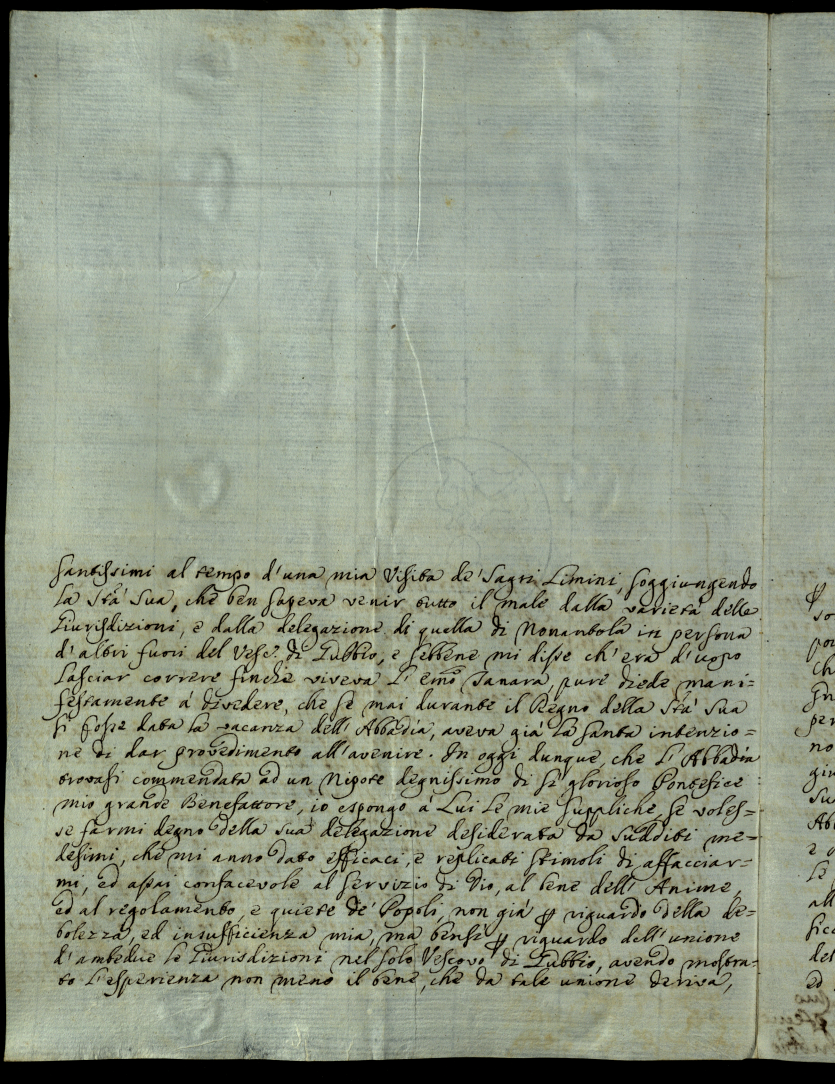 santissimi al tempo d'una mia Visita de' Sagri Limini, soggiungendo
la Stà Sua, che ben sapeva venir tutto il male dalla varietà delle
Giurisdizioni, e dalla delegazione di quella di Nonantola in persona
d'altri fuori del Vesc.º di Gubbio, e sebbene mi disse ch'era d'uopo
lasciar correre finche viveva l' Emo Tanara, pure diede mani=
festamente à divedere, che se mai durante il Regno della Stà Sua
si fosse data la vacanza dell' Abbadia, aveva già la santa intenzio=
ne di dar provedimento all'avenire. In oggi dunque, che l' Abbadia
trovasi commendata ad un Nipote degnissimo di sì glorioso Pontefice
mio grande Benefattore, io espongo à Lui le mie suppliche, se voles=
se farmi degno della sua delegazione desiderata da Sudditi me=
desimi, che mi anno dato efficaci, e replicati stimoli di affacciar=
mi, ed assai confacevole al servizio di Dio, al bene dell' Anime,
ed al regolamento, e quiete de' Popoli, non già ꝑ riguardo della de=
bolezza, ed insufficienza mia, ma bensì ꝑ riguardo dell'unione
d'ambedue le Giurisdizioni nel solo Vescovo di Gubbio, avendo mostra=
to l'esperienza non meno il bene, che da tale unione deriva,